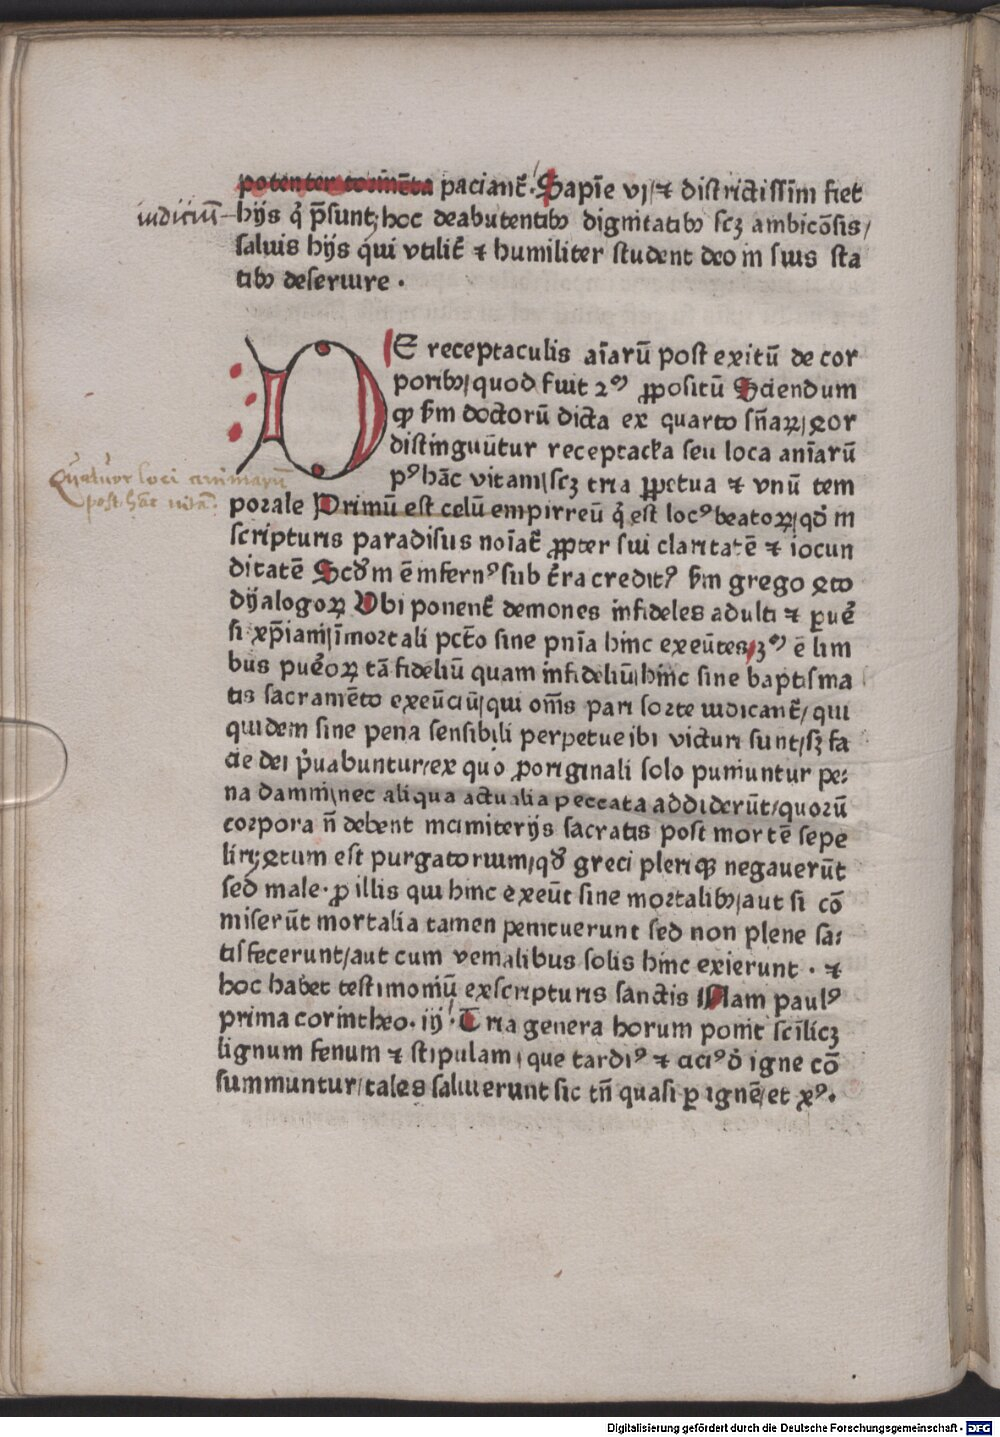 potenter tormēta paciant᷑. Sapīe vj/ ⁊ districtissim fiet
iudiciū hijs q̇ p̄sunt, hoc deabutentibꝰ dignitatibꝰ scꝫ ambicōsis/
saluis hijs qui vtilit᷑ ⁊ humiliter student deo in suis sta
tibꝰ deseruire .
DE receptaculis aīarū post exitū de cor
poribꝰ/ quod fuit 2ᵐ ꝓpositū Sciendum
ꝙ ẜm doctorū dicta ex quarto sn̄aꝝ/ ꝯor
distinguūtur receptacĺa seu loca aīarū
pꝰ hāc vitam/ scꝫ tria ꝑpetua ⁊ vnū tem
Quatuor loci animarū
post hāc vitā.
porale Primū est celū empirreū q̇ est locꝰ beatoꝝ/ qd̕ in
scripturis paradisus noīat᷑ ꝓpter sui claritatē ⁊ iocun
ditatē Scd̕m ē infernꝰ sub t᷑ra credit᷑ ẜm grego ꝯto
dyalogoꝝ Vbi ponent᷑ demones infideles adulti ⁊ ꝑue᷑
si xp̄iani/ ī mortali pctō sine pnīa hinc exeūtes/ 3ᵐ ē lim
bus pue᷑oꝝ tā fideliū quam infideliū/ hinc sine baptisma
tis sacramēto exeūciū/ qui om̄s pari sorte iudicant᷑/ qui
quidem sine pena sensibili perpetue ibi victuri sunt/ sꝫ fa
cie dei p̓uabuntur/ ex quo ꝓ originali solo puniuntur pe:
na damni/ nec aliqua actualia peccata addiderūt/ quorū
corpora n̄ debent in cimiterijs sacratis post mortē sepe
liri/ ꝯtum est purgatorium/ qd̕ greci pleriqꝫ negauerūt
sed male. ꝓ illis qui hinc exeūt sine mortalibꝰ/ aut si cō
miserūt mortalia tamen penituerunt sed non plene sa:
tisfecerunt/ aut cum venialibus solis hinc exierunt . ⁊
hoc habet testimoniū ex scripturis sanctis Nam paulꝰ
prima corintheo. iij. Tria genera horum ponit scilicꝫ
lignum fenum ⁊ stipulam, que tardiꝰ ⁊ ciciꝰ ī igne cō
summuntur/ tales saluierunt sic tn̄ quasi ꝑ ignē/ et xꝰ.
Digitalisierung gefördert durch die Deutsche Forschungsgemeinschaft - DFG